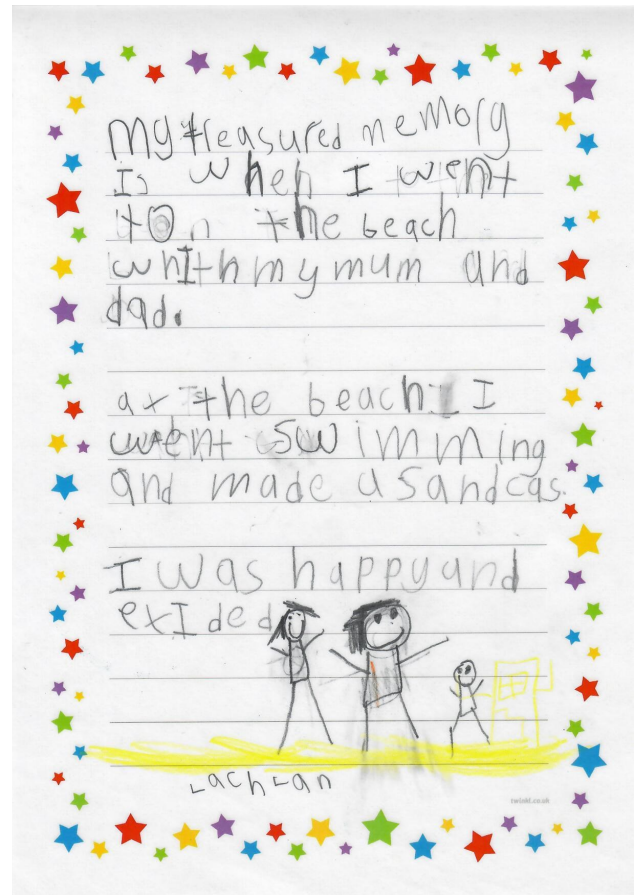 my treasured memory
Is when I went
to the beach
whith my mum and
dad.
at the beach I
went swimming
and made a sandcas
I was happy and
exIded
Lachlan
twinkl.co.uk